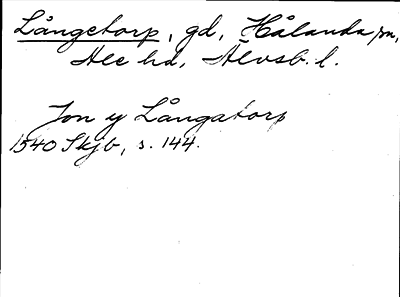 Långetorp, gd, Hålanda sn,
Ale hd, Älvsb. l.
Jon y Långatorp
1540 Skjb, s. 144.